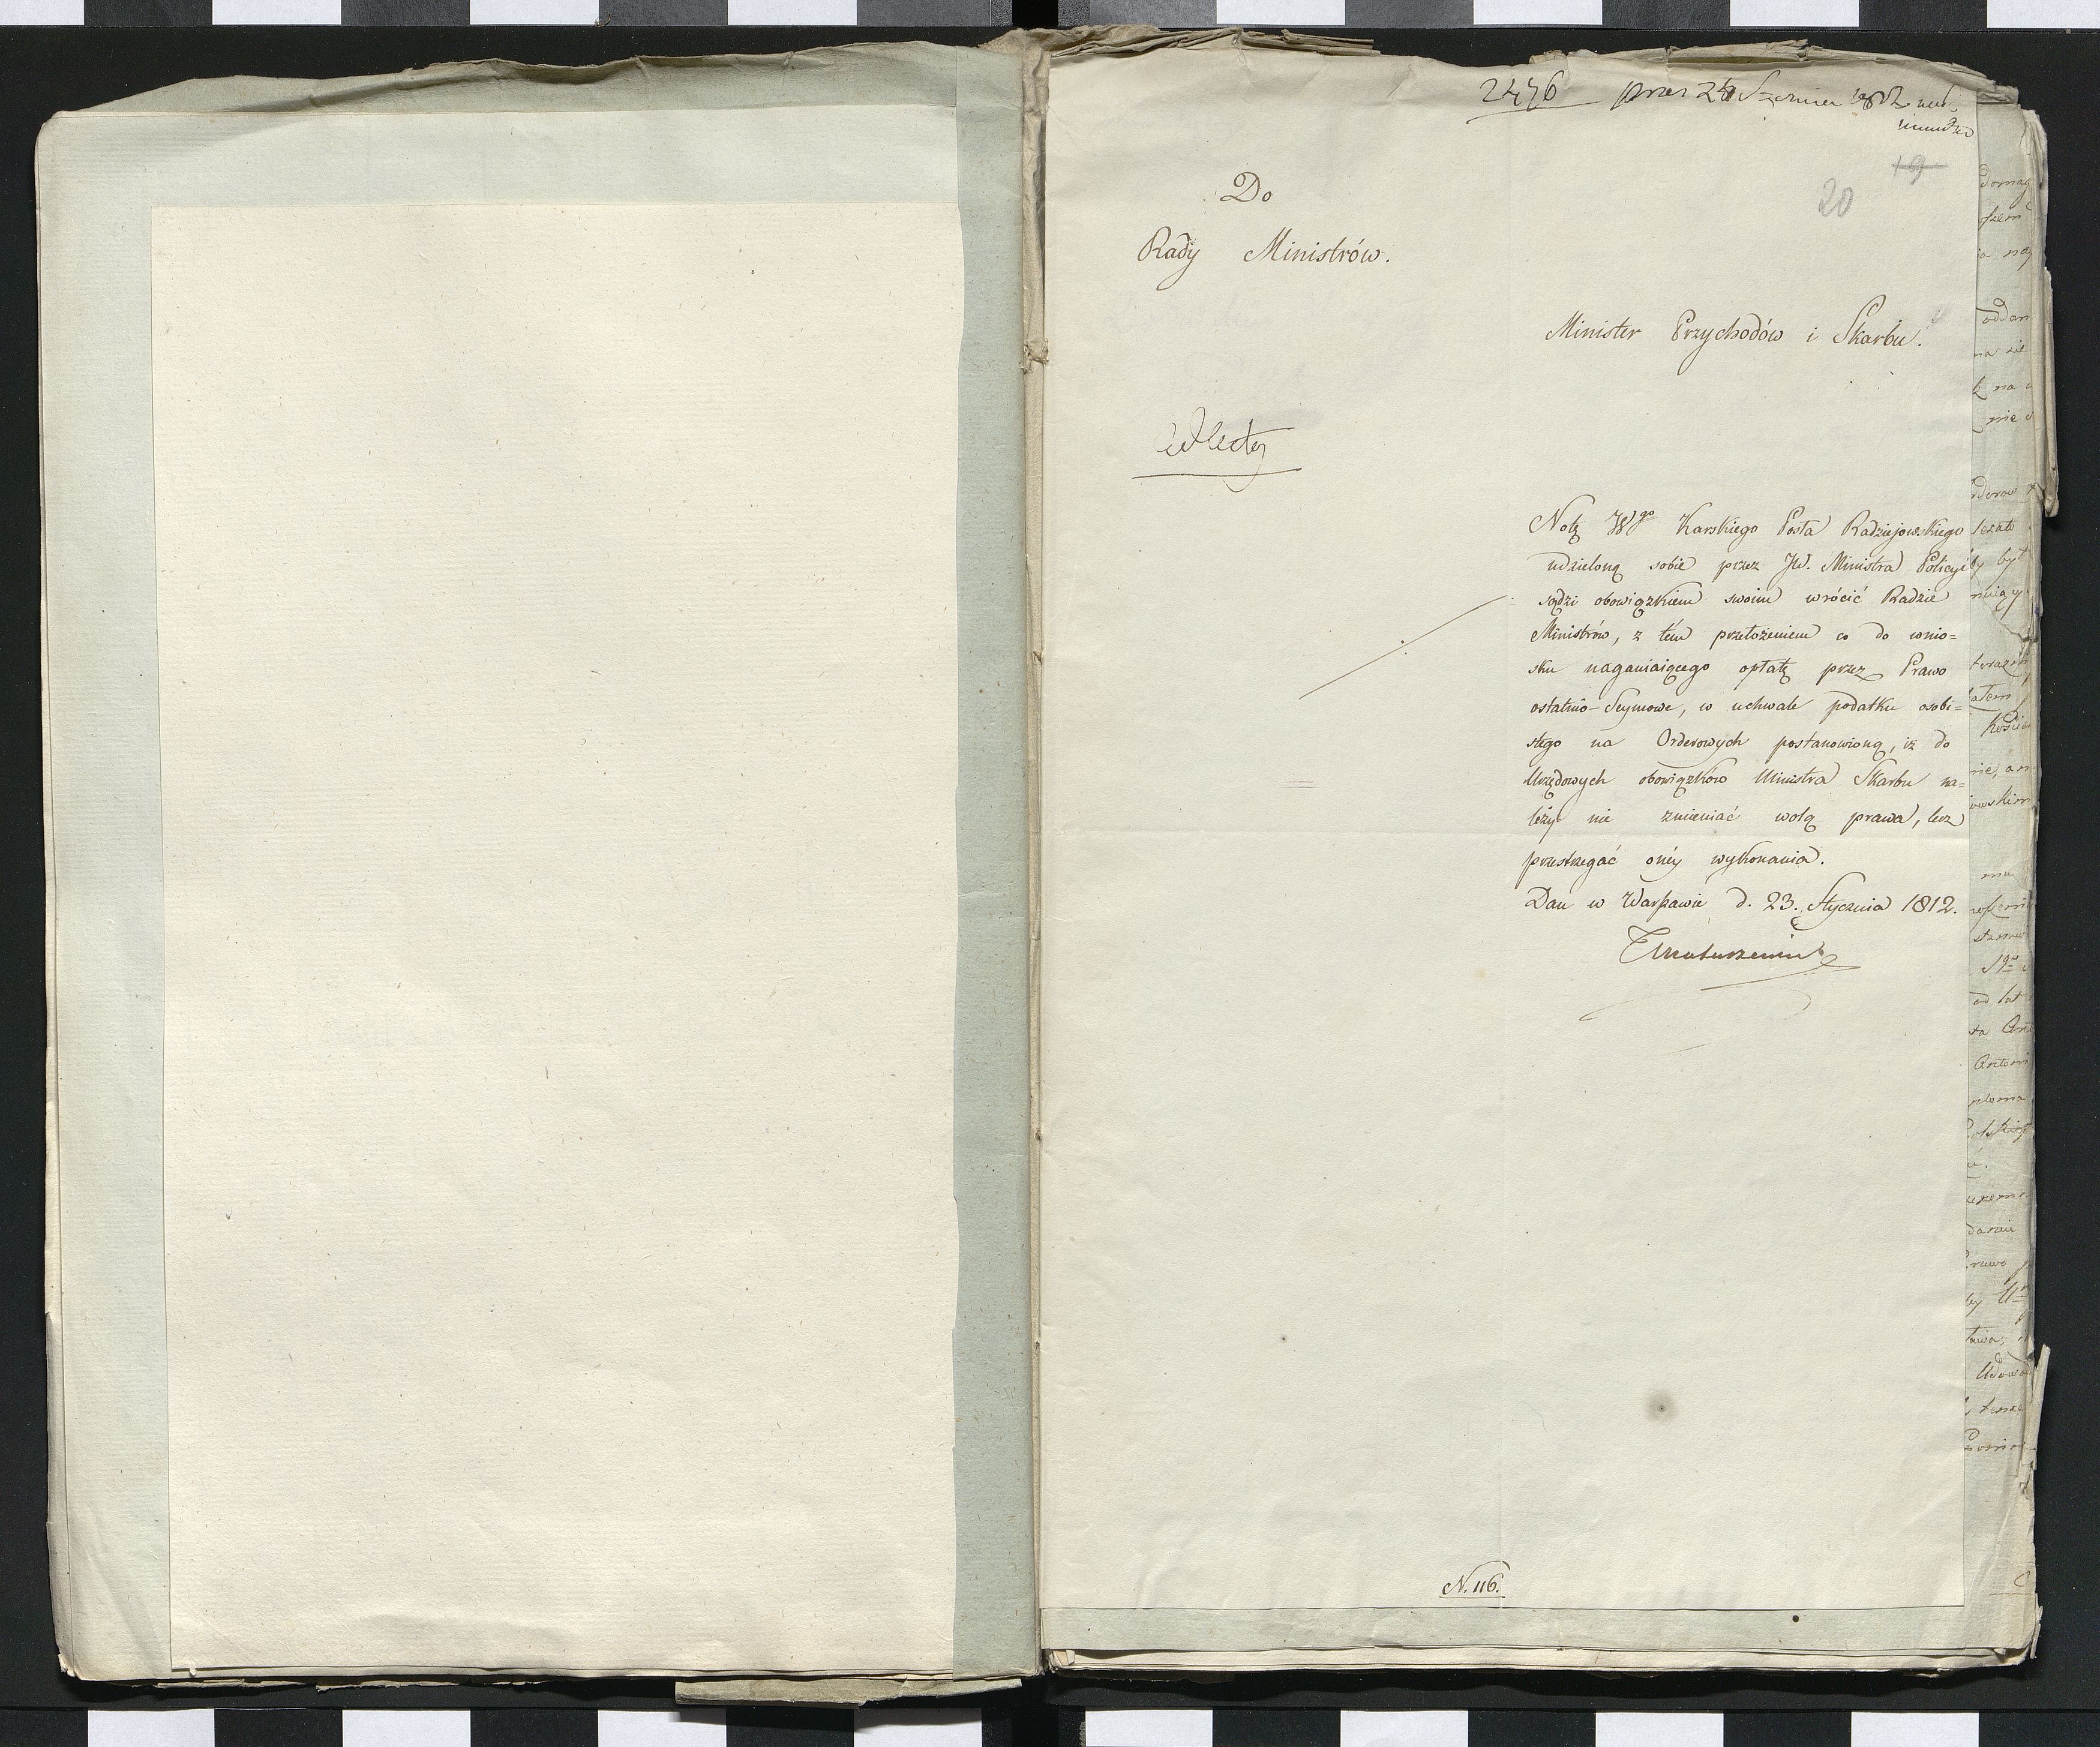 2476 prez 24 Stycznia 1812
19
20
Do
Rady Ministrów.
Minister Przychodów i Skarbu.
Notę JWgo Karskiego Posła Radziejowskiego
udzieloną sobie przez JW. Ministra Policyi
sądzi obowiązkiem swoim wrócić Radzie
Ministrów, z tém przełożeniem co do wnio=
sku naganiaiącego opłatę przez Prawo
ostatnio-Seymowe, w uchwale podatku osobi=
stego na Orderowych postanowioną, iż do
Urzędowych obowiązków Ministra Skarbu na=
leży nie zmieniać wolą prawa, lecz
przestrzegać onéy wykonania.
Dan w Warszawie d. 23. Stycznia 1812.
TMatuszewic
N. 116.